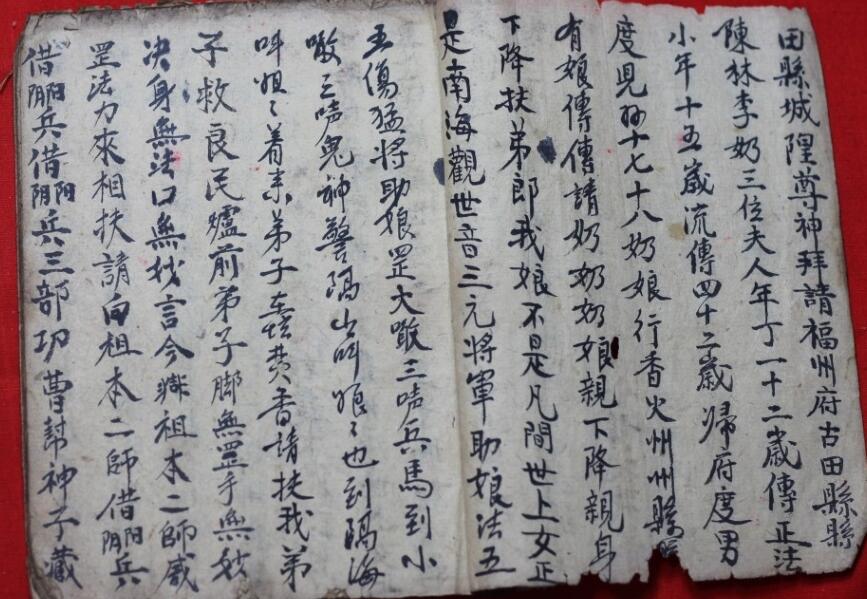 田縣城隍尊神拜請福州府古田縣縣
陳林李奶三位夫人年丁一十二歲傳正法
小年十五歲流傳四十二歲歸府度男
度見孫十七十八奶娘行香火州州縣
有娘傳傳請奶奶奶娘親下降親身
下降扶弟郎我娘不是凡間世上女正
是南海觀世音三元將軍助娘法五
五傷猛將助娘罡大噉三吽兵馬到小
噉三吽鬼神驚隔山叫娘娘也到隔海
叫娘々着來弟子壇焚香請扶我弟
子救良民爐前弟子脚無罡手無妙
决身無法口無妙言今嶽祖本二師威
罡法力來相扶請向祖本二師借陰陽兵
借陰陽兵借陰陽兵三部功曹幫神子藏